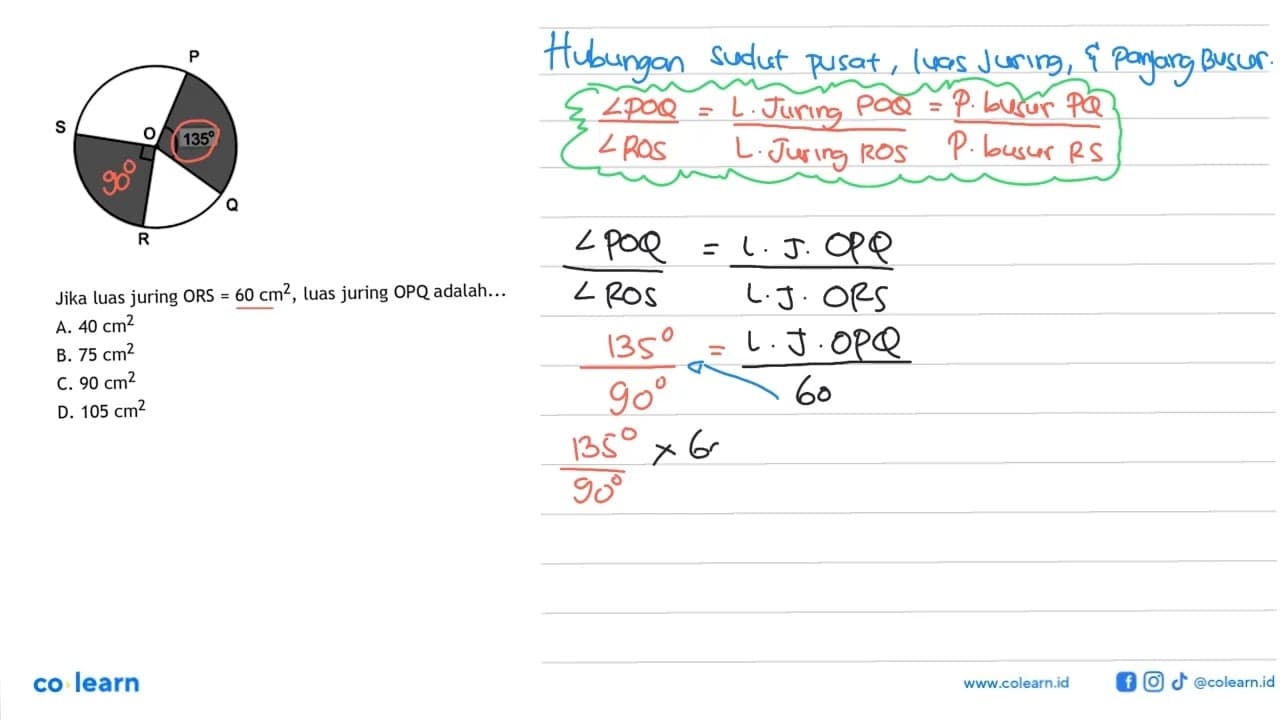 P
S
O
135°
90°
Q
R
Jika luas juring ORS = 60 cm², luas juring OPQ adalah...
A. 40 cm²
B. 75 cm²
C. 90 cm²
D. 105 cm²
Hubungan sudut pusat, luas Juring, & Panjang Busur.
∠POQ = L. Juring POQ = P. busur PQ
∠ROS L. Juring ROS P. busur RS
∠POQ = L. J. OPQ
∠ROS L. J. ORS
135° = L. J. OPQ
90° 60
135° × 6
90°
co learn
www.colearn.id
@colearn.id